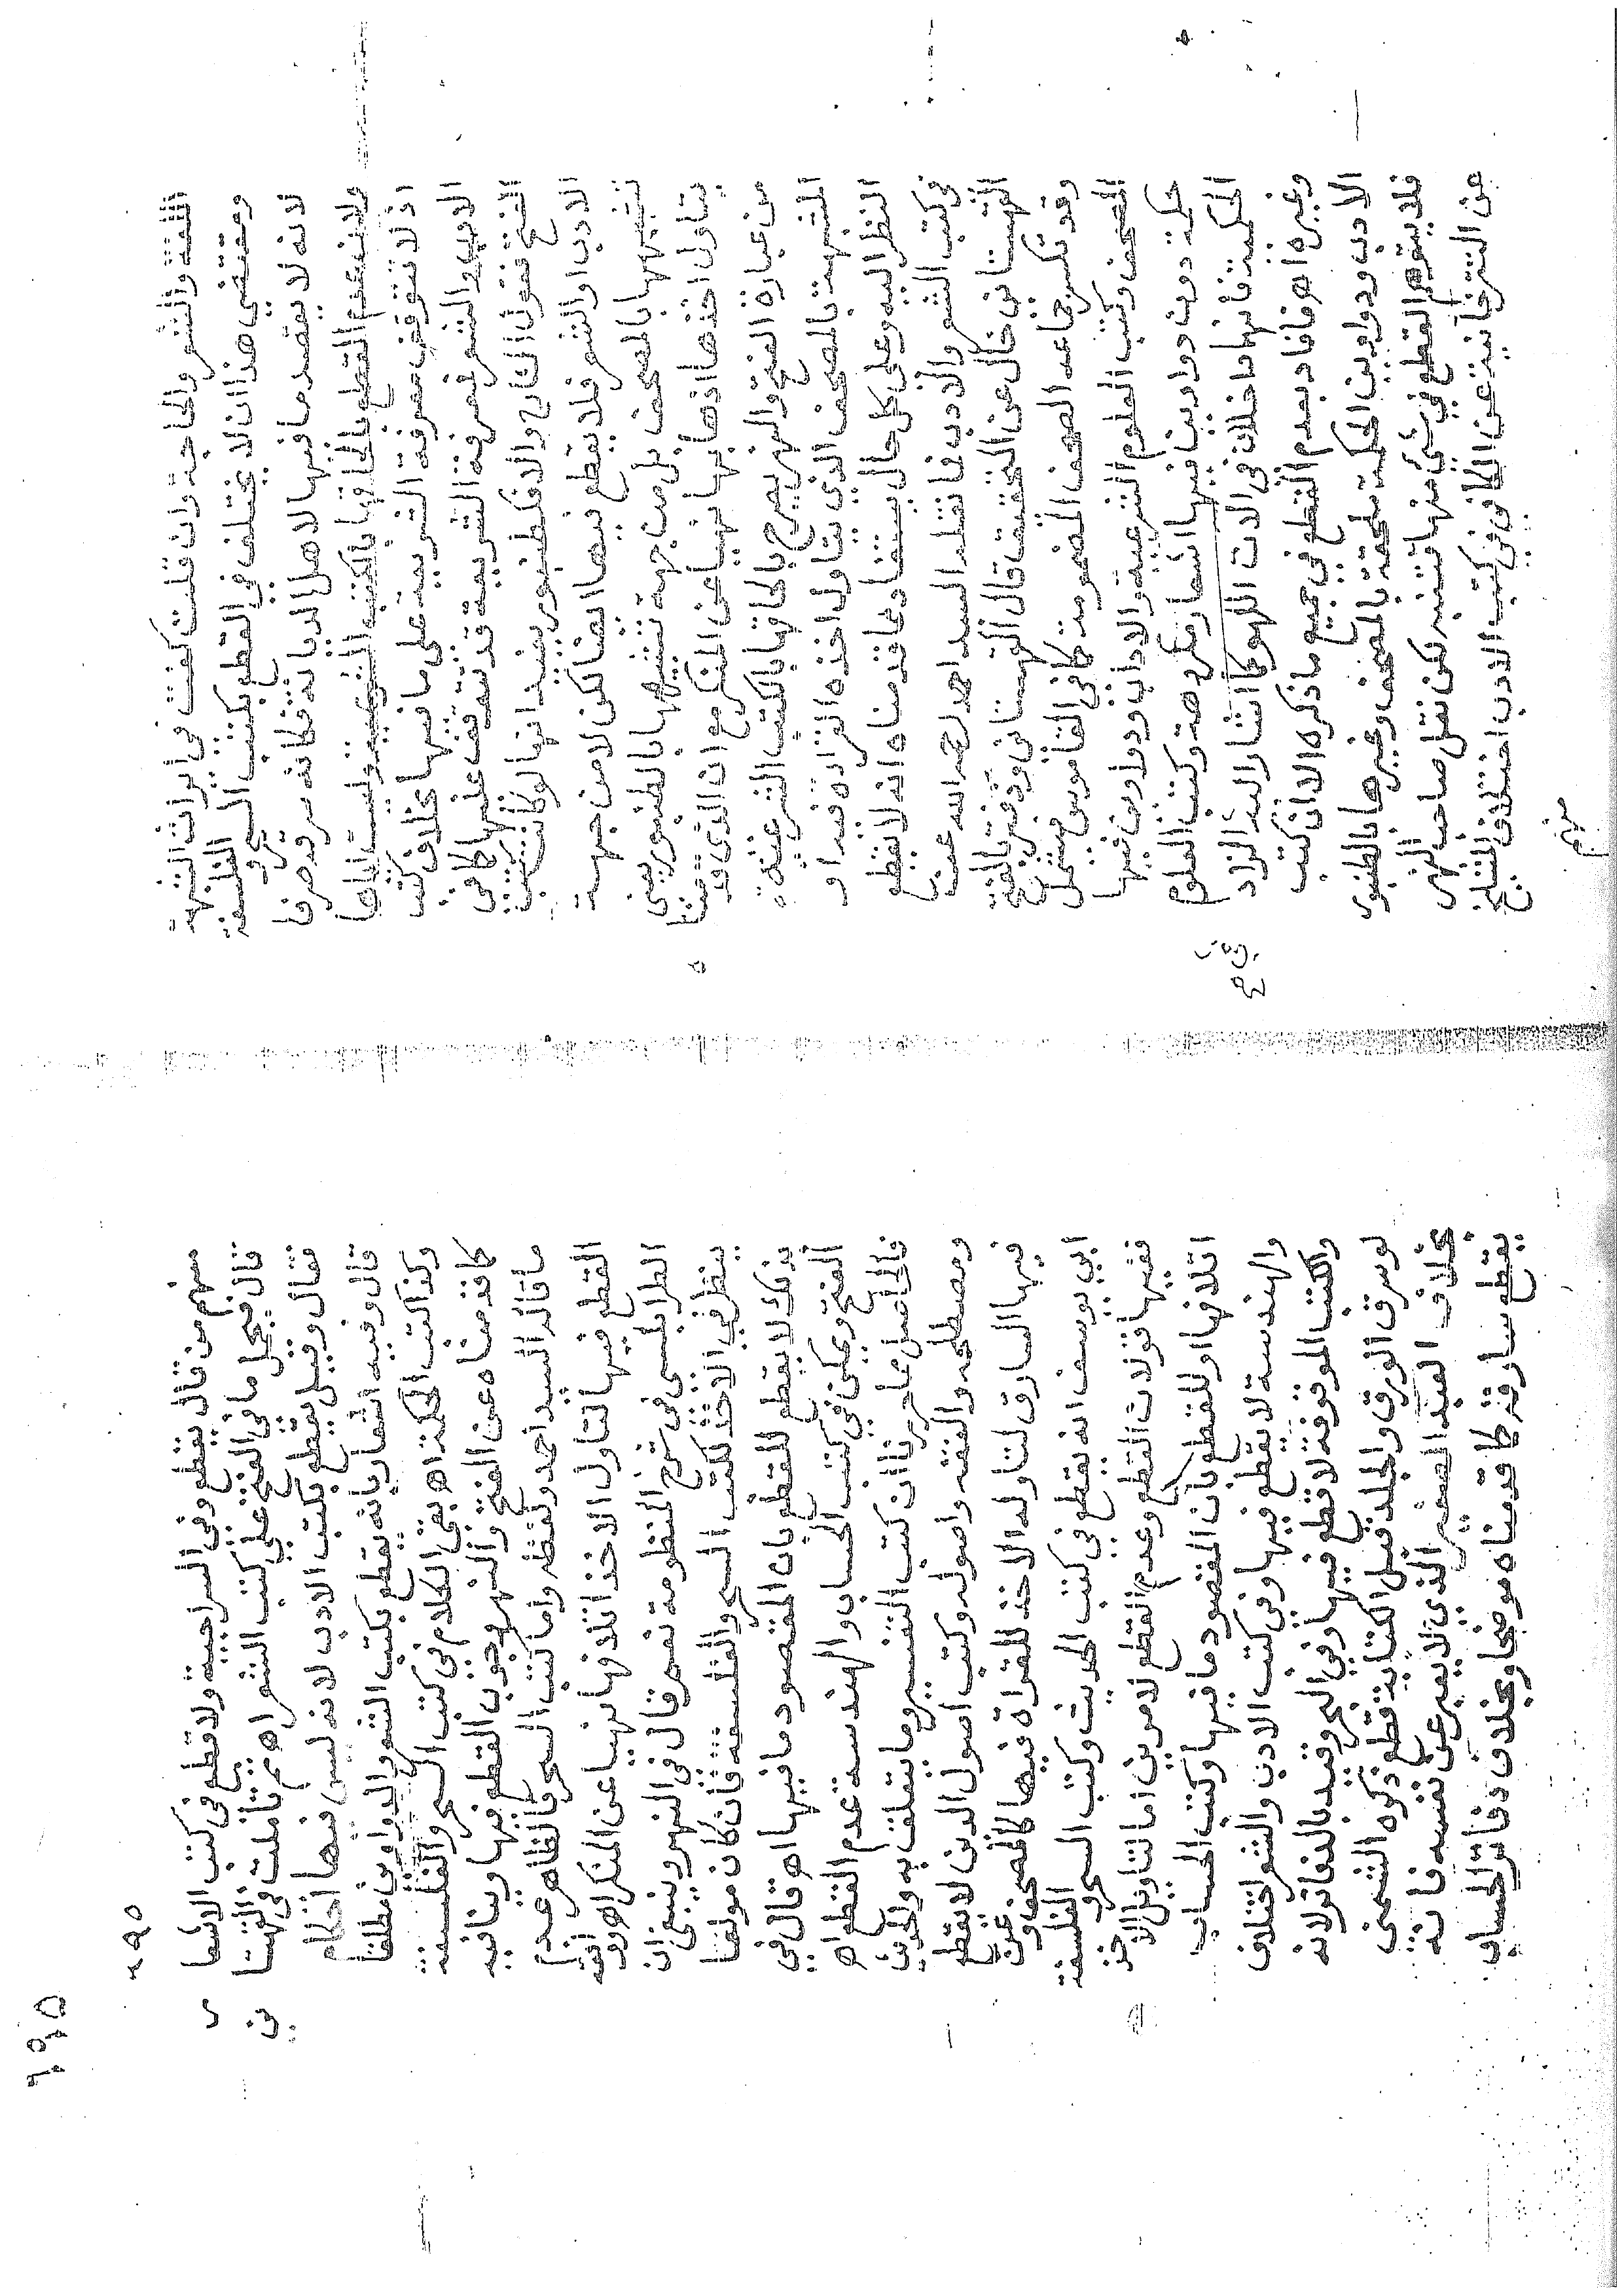 اللغة والشعر والحاجة وان قلت كفت في ايراث الشبهة
ومقتضى هذا ان لا يختلف في القطع بكتب السحر والفلسفة
لانه لا يقصد ما فيها لاهل الديانة فكانه سرقة صرفا
ولا نسلم القطع بالحاقها بالكتب الشرعية وليست الحاقها
اذ لا تتوقف معرفة الشريعة على ما فيها بخلاف كتب
الادب والشعر فمعرفة الشريعة قد تتوقف عليها كما في
الفتح فنقول الشارح والدف كطنبور يفيد انها لو كانت كتب
الادب او الشعر فلا يقطع فيها ايضا لكن لا من جهة
تشبيهها بالمصحف بل من جهة تشبيهها بالطنبور يعني
بتاول اخذها اذهابها نهيا عن المنكر مع ان الذي قدمنا
من عبارة الفتح والنهر يصرح بالحاقها بالكتب الشرعية
المشبهة بالمصحف الذي يتاول اخذه القراءة فيه او
النظر اليه وعلى كل حال يستفاد مما قدمناه انه لا يقطع
في كتب الشعر والادب فما نقله السيد احمد رحمه الله عن
القهستاني خال عن التحقيق قال القهستاني ودفتر بالفتح
وقد تكسر جماعه الصحف المضمومة كما في القاموس فيشمل
المصحف وكتب العلوم الشرعية والاداب ودواوين فيها
حكمة دون دواوين فيها اشعار مكروهة وكتب العلوم
الحكمية فانها داخلة في الات اللهو كما اشار اليه الزاد
وغيره اه فافاد بعدم القطع في جميع ما ذكره الا ان كتب
الادب ودواوين الحكمة ملحقة بالمصحف وغيرها بالطنبور
فلا يتوهم القطع في شيء منها فتنبه لكن نقل صاحب النهر
عن التتر خانية عن الكافي في كتب الادب اختلاف المشايخ
منهم
٢٩٥
منهم من قال يقطع وفي السراجية ولا قطع في كتب الاشعا
قال فيحمل ما في الفتح على كتب الشعر اه ثم تأملت في القهستا
فقال وقيل يقطع بكتب الادب لانه ليس فيها احكام
قال وفيه اشعار بانه يقطع بكتب الشعر والدواوين مطلقا
وكذا كتب الحكمة اه بقي الكلام في كتب السحر والفلسفة
كما قدمناه عن الفتح والنهر وجوب القطع فيها وينافيه
ما قاله السيد احمد ولفظه واما كتب السحر فالظاهر عدم
القطع فيها لتاول الاخذ اتلافها نهيا عن المنكر اه وراى
الطرابلسي في شرح المنظومة نعم قال في النهر وينبغي ان
ينظر في الاخذ لكتب السحر والفلسفة فان كان مولعا
بذلك لا يقطع للقطع بان المقصود ما فيها اه قال في
الفتح ويحكى في كتب الحساب والهندسة عدم القطع اه
فالحاصل على ما حررنا ان كتب التفسير وما يتعلق به والحديث
ومصطلحه والفقه واصوله وكتب اصول الدين لا يقطع
فيها السارق لتاوله الاخذ للقراة فيها كالمصحف وعن
ابي يوسف انه يقطع في كتب الحديث وكتب السحر والفلسفة
ففيها قولان القطع وعدم القطع لامرين اما لتاويل الاخذ
اتلافها او للقطع بان المقصود ما فيها وكتب الحساب
والهندسة لا يقطع فيها وفي كتب الادب والشعر اختلاف
والكتب الموقوفة لا قطع فيها وفي البحر وقيد بالدفاتر لانه
لو سرق الورق والجلد قبل الكتابة قطع ذكره الشمني
بخلاف العبد الصغير الذي لا يعبر عن نفسه فانه
يقطع سارقه كما قدمناه موضحا وبخلاف دفاتر الحساب